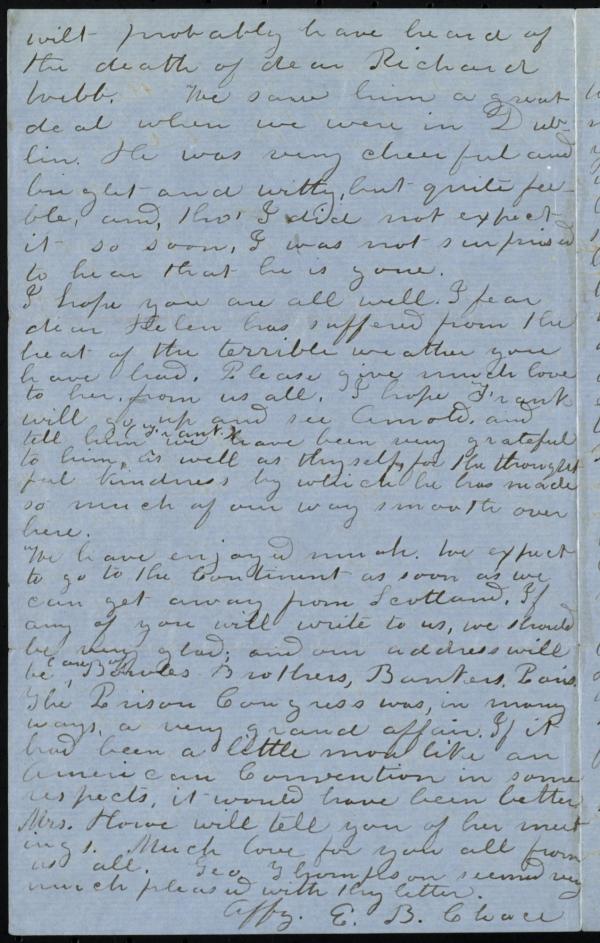 wilt probably have heard of
the death of dear Richard
Webb. We saw him a great
deal when we were in Dub-
lin. He was very cheerful and
bright and witty, but quite fee-
ble, and, tho' I did not expect
it so soon, I was not surprised
to hear that he is gone.
I hope you are all well. I fear
dear Helen has suffered from the
heat of the terrible weather you
have had. Please give much love
to her from us all. I hope Frank
will go up and see Arnold. and
tell him (Frank) we have been very grateful
to him, as well as thyself, for the thought
ful kindness by which he has made
so much of our way smooth over
here.
We have enjoyed much. We expect
to go to the Continent as soon as we
can get away from Scotland. If
any of you will write to us, we should
be very glad; and our address will
be, care of Bowles Brothers, Bankers, Paris.
The Prison Congress was, in many
ways, a very grand affair. If it
had been a little more like an
American Convention in some
respects, it would have been better
Mrs. Howe will tell you of her meet
ings. Much love for you all from
us all. Geo. Thompson seemed very
much pleased with thy letter.
Affy. E. B. Chace